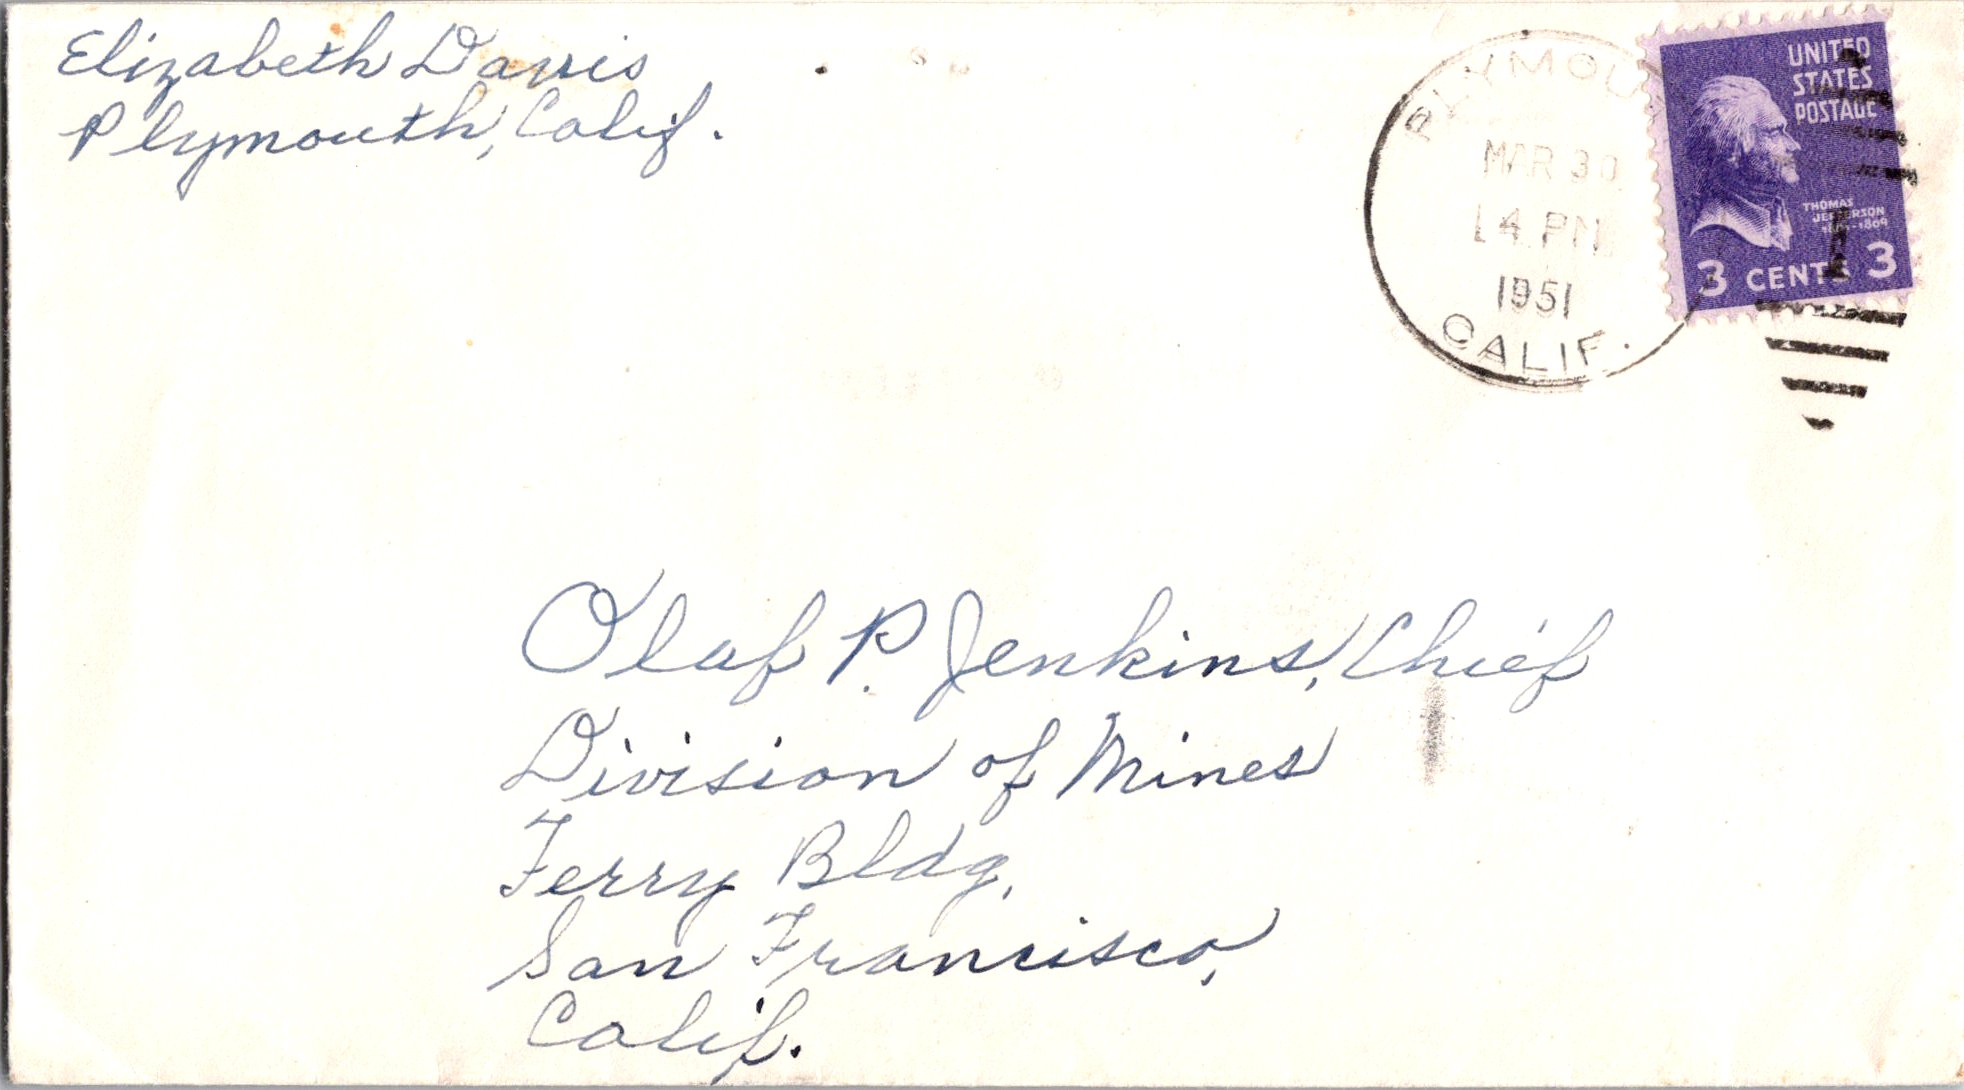 Elizabeth Davis
Plymouth, Calif.
PLYMOU
MAR 30
4 PM
1951
CALIF.
UNITED
STATES
POSTAGE
THOMAS
JEFFERSON
1801-1809
3 CENTS 3
Olaf P. Jenkins, Chief
Division of Mines
Ferry Bldg.
San Francisco,
Calif.